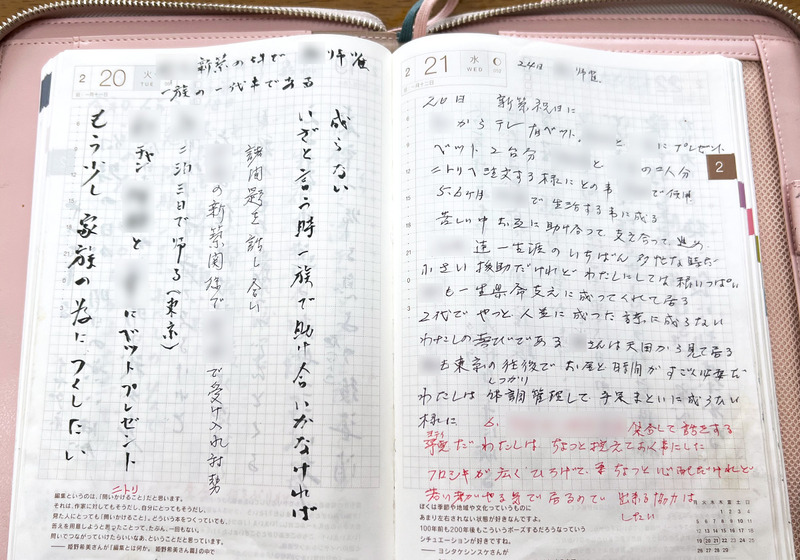 2 20 火 TUE
新築の件で 帰省
一族の一代事である
成らない
いざと言う時一族で助け合いかなければ
諸問題を話し合い
の新築関係で
で受け入れ対勢
二泊三日で帰る(東京)
チャン
と にベットプレゼント
もう少し家族の為につくしたい
ニトリ
編集というのは、「問いかけること」だと思います。
それは、作家に対してもそうだし、自分にとってもそうだし、
見た人にとっても「問いかけること」。どういう本をつくっていても、
答えを用意しようと思ったことって、たぶん、一回もない。
問いでつながっていけたらいいなあ、ということだと思っています。
—— 姫野希美さんが『編集とは何か。 姫野希美さん篇』の中で
2 21 水 WED
24日 帰省
20日 新築祝日に
からテレ 有ベット、 と にプレゼント
ベット2台分 と の二人分
ニトリへ注文する様にとの事 で使用
5.6ヶ月 で生活する事に成る
苦しい中お互に助け合って、支え合って、進め
達一生涯のいちばん多忙な時だ
小さい援助だけれどわたしにしては精いっぱい
も一生県命支えに成ってくれて居る
2代でやっと人並に成つた 家に成らない
わたしの喜びである さんは天国から見て居る
も東京の往復でお金と時間がすごく必要だ
わたしはしっかり体調管理して、手足まといに成らない
様に
集合して話をする
だわたしは、ちょっと控えておく事にした
フロシキが広くひろげて、 ちょっと心配だけれど
若い者がやる気で居るので 出来る協力は
したい
2
ぼくは季節や地域や文化っていうものに
あまり左右されない状態が好きなんですよ。
100年前も200年後もこういうポーズするだろうなっていう
シチュエーションが好きですね。
—— ヨシタケシンスケさんが